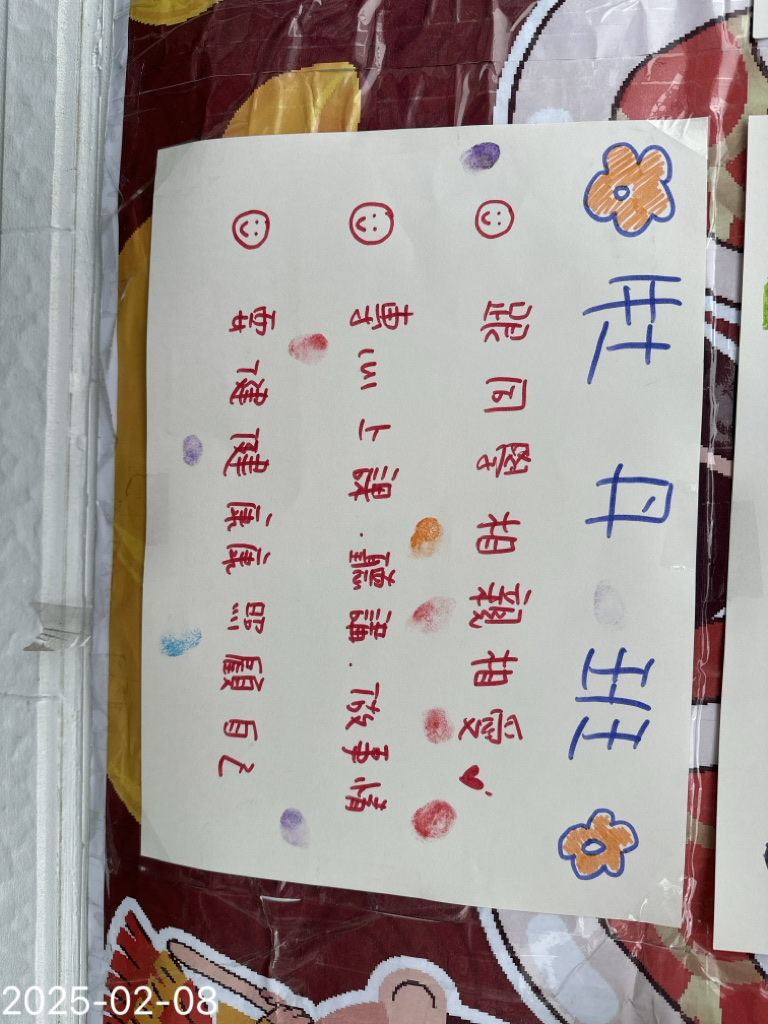 牡丹班
跟同學相親相愛
專心上課.聽講.做事情
要健健康康照顧自己
2025-02-08